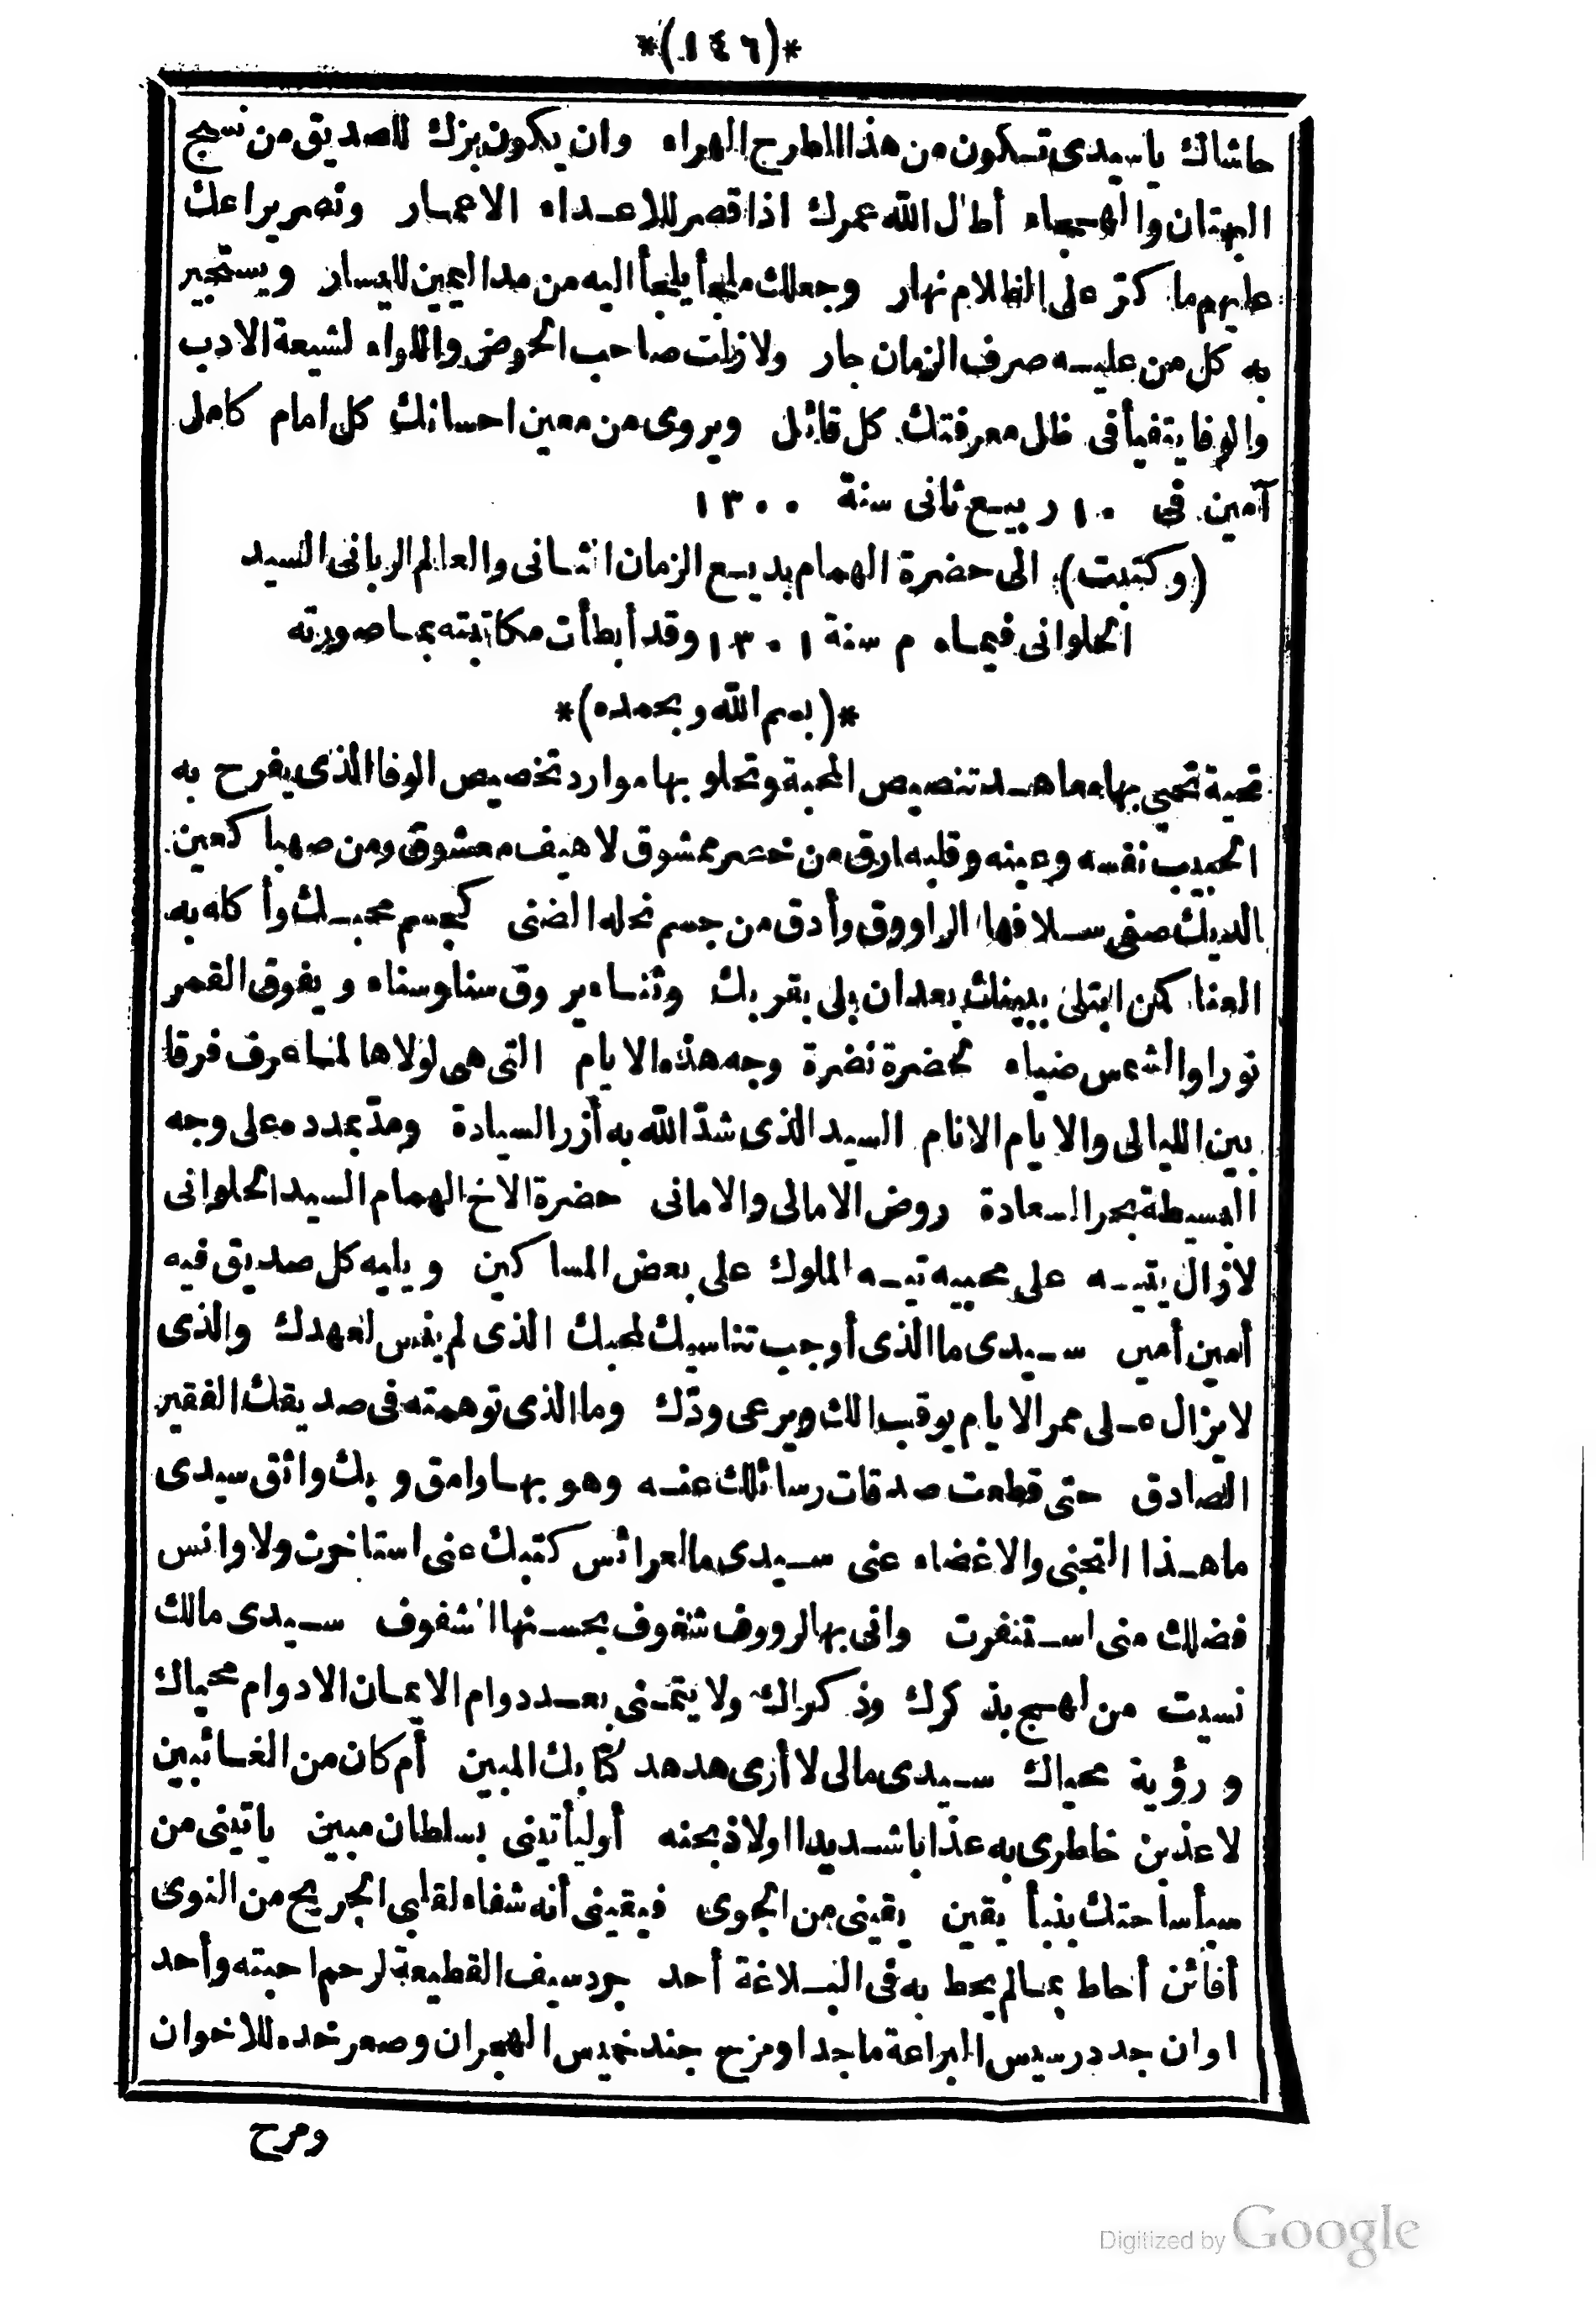 *(١٤٦)*
حاشاك ياسيدى تسكون من هذا المطرح الهراء وان يكون بزك للصديق من نسج
البهتان والهجاء أطال الله عمرك اذا قصر للاعداء الاعمار ونصر يراعك
عليهم ما كر على الظلام نهار وجعلك ملجأ يلجأ اليه من مد اليمين لليسار ويستجير
به كل من عليه صرف الزمان جار ولازلت صاحب الحوض واللواء لشيعة الادب
والوفا يتفيأ فى ظل معرفتك كل قائل ويروى من معين احسانك كل امام كامل
آمين فى ١٠ ربيع ثانى سنة ١٣٠٠
(وكتبت) الى حضرة الهمام بديع الزمان الثانى والعالم الربانى السيد
الحلوانى فيماه م سنة ١٣٠١ وقد أبطأت مكاتبته بما صورته
*(بسم الله وبحمده)*
تحية تحيى بها معاهد تنصيص المحبة وتحلو بها موارد تخصيص الوفا الذى يفرح به
الحبيب نفسه وعينه وقلبه ارق من خصر ممشوق لاهيف معشوق ومن صهبا كعين
الديك صفى سلافها الراووق وأدق من جسم نحله الضنى كجسم محبك وأكله به
العنا كمن ابتلى ببينك بعد ان بلى بقربك وثناء يروق سنا وسناء ويفوق القمر
نورا والشمس ضياء لحضرة نضرة وجه هذه الايام التى هى لولاها لما عرف فرقا
بين الليالى والايام الانام السيد الذى شدّ الله به أزر السيادة ومدّ بمدده على وجه
البسيطة بحر السعادة روض الامالى والامانى حضرة الاخ الهمام السيد الحلوانى
لازال يتيه على محبيه تيه الملوك على بعض المساكين ويليه كل صديق فيه
أمين أمين سيدى ما الذى أوجب تناسيك لمحبك الذى لم ينس لعهدك والذى
لايزال على ممر الايام يوقب الك ويرعى ودّك وما الذى توهمته فى صديقك الفقير
الصادق حتى قطعت صدقات رسائلك عنه وهو بها وامق وبك واثق سيدى
ما هذا التجنى والاغضاء عنى سيدى ما لعرائس كتبك عنى استاخرت ولا وانس
فضلك منى استنفرت وانى بها لرووف شغوف بحسنها الشفوف سيدى مالك
نسيت من لهج بذكرك وذكراك ولا يتمنى بعد دوام الايمان الا دوام محياك
ورؤية محياك سيدى مالى لا أرى هدهد كتابك المبين أم كان من الغائبين
لاعذبن خاطرى به عذابا شديدا اولاذبحنه أوليأتينى بسلطان مبين ياتينى من
سبأ ساحتك بنبأ يقين يقينى من الجوى فيقينى أنه شفاء لقلبى الجريح من النوى
أفائن أحاط بما لم يحط به فى البلاغة أحد جرد سيف القطيعة لرحم احبته وأحد
اوان جدد رسيس البراعة ماجدا ومزح جند خميس الهجران وصعر خده للاخوان
ومرح
Digitized by Google